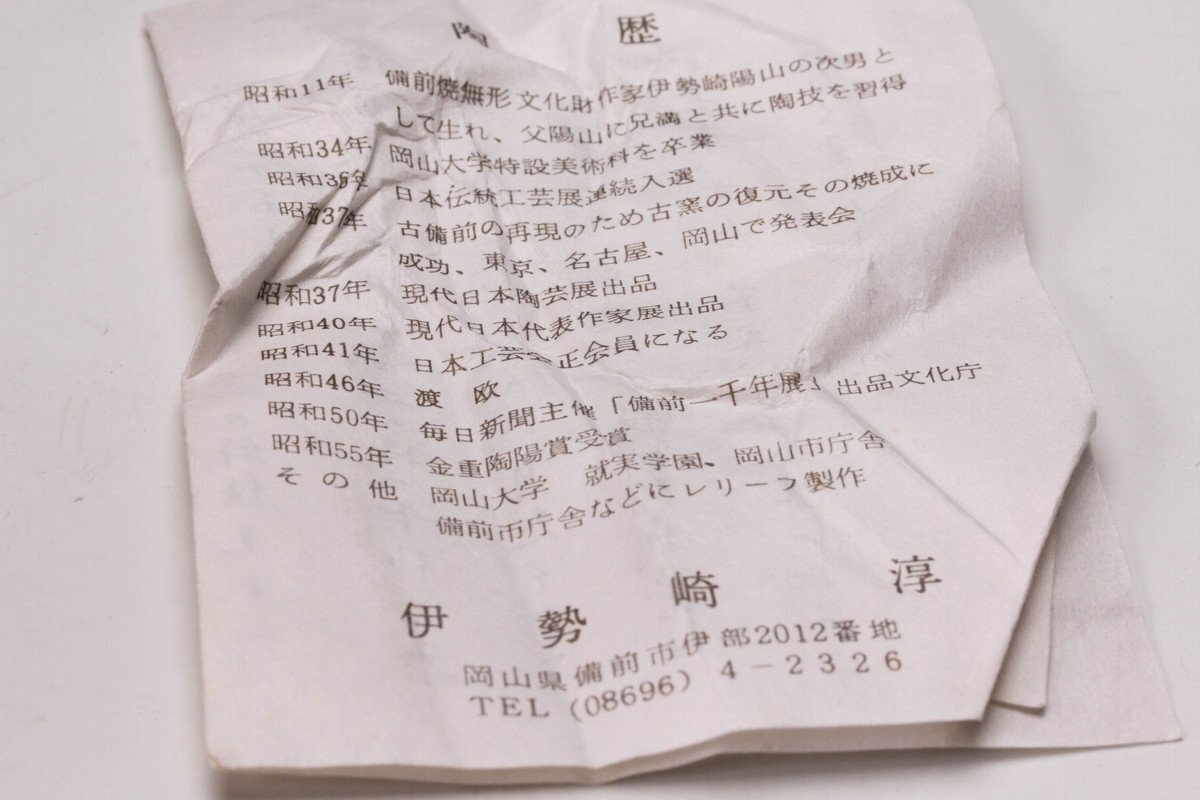 陶 歴
昭和11年 備前焼無形文化財作家伊勢崎陽山の次男と
して生れ、父陽山に兄満と共に陶技を習得
昭和34年 岡山大学特設美術科を卒業
昭和36年 日本伝統工芸展連続入選
昭和37年 古備前の再現のため古窯の復元その焼成に
成功、東京、名古屋、岡山で発表会
昭和37年 現代日本陶芸展出品
昭和40年 現代日本代表作家展出品
昭和41年 日本工芸会正会員になる
昭和46年 渡 欧
昭和50年 毎日新聞主催「備前一千年展」出品文化庁
昭和55年 金重陶陽賞受賞
その他 岡山大学 就実学園、岡山市庁舎
備前市庁舎などにレリーフ製作
伊 勢 崎 淳
岡山県備前市伊部2012番地
TEL (08696) 4-2326